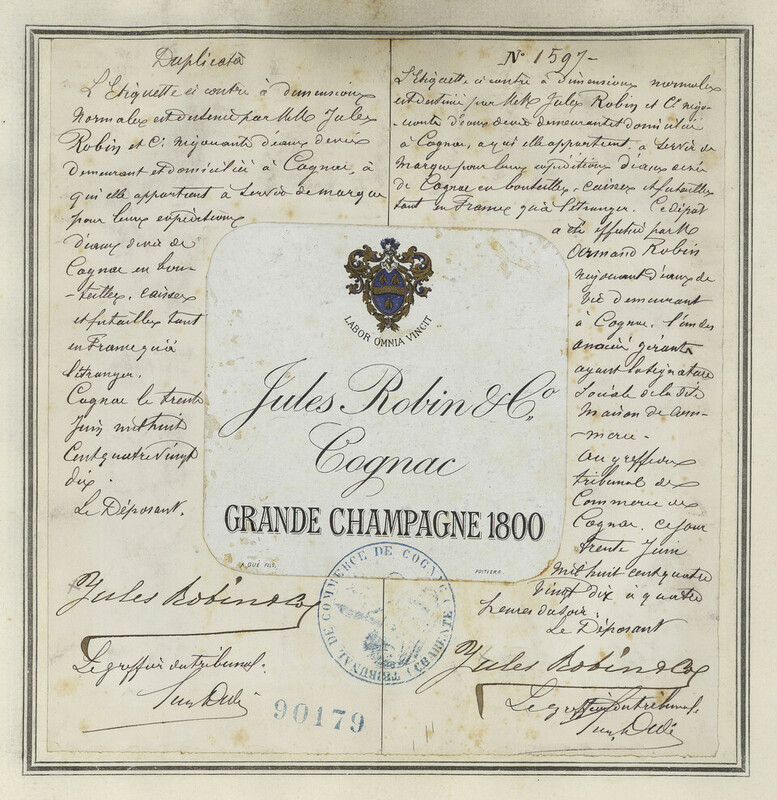 Duplicata
L'Etiquette ci contre à dimensions
normales est destinée par MM Jules
Robin et Cie négociants d'eaux de vie
demeurant et domiciliés à Cognac, à
qui elle appartient a servir de marque
pour leurs expéditions
d'eaux de vie de
Cognac en bou-
-teilles, caisses
et futailles tant
en France qu'à
l'étranger.
Cognac le trente
Juin mil huit
cent quatre vingt
dix.
Le Déposant.
Jules Robin & Co
Le greffier du tribunal.
No 1597-
L'Etiquette ci contre à dimensions normales
est destinée par MM Jules Robin et Cie négo-
-ciants d'eaux de vie demeurant et domiciliés
à Cognac, a qui elle appartient a servir de
marque pour leurs expéditions d'eaux de vie
de Cognac en bouteilles, caisses et futailles
tant en France qu'à l'étranger. Ce dépôt
a été effectué par M.
Armand Robin
négociant d'eaux de
vie demeurant
à Cognac, l'un des
associés gérants
ayant la signature
sociale de la dite
maison de com-
-merce.
Au greffe du
tribunal de
Commerce de
Cognac, ce jour
trente Juin
mil huit cent quatre
vingt dix à quatre
heures du soir.
Le Déposant
Jules Robin & Co
Le greffier du tribunal
LABOR OMNIA VINCIT
Jules Robin & Co.
Cognac
GRANDE CHAMPAGNE 1800
POITIERS
TRIBUNAL DE COMMERCE DE COGNAC (CHARENTE)
90179